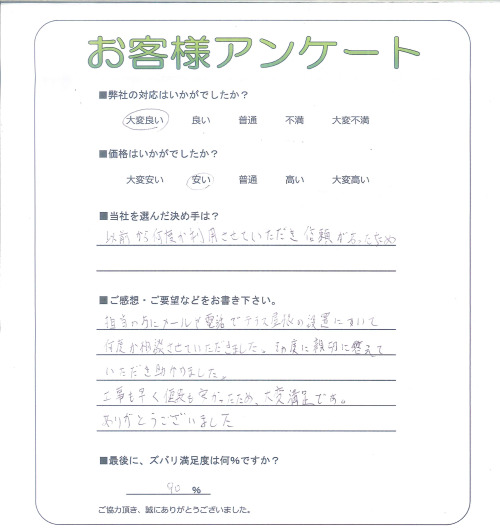 お客様アンケート
■弊社の対応はいかがでしたか？
大変良い 良い 普通 不満 大変不満
■価格はいかがでしたか？
大変安い 安い 普通 高い 大変高い
■当社を選んだ決め手は？
以前から何度か利用させていただき信頼があったため
■ご感想・ご要望などをお書き下さい。
担当の方にメールや電話でテラス屋根の設置について
何度か相談させていただきました。その度に親切に答えて
いただき助かりました。
工事も早く価格も安かったため、大変満足です。
ありがとうございました
■最後に、ズバリ満足度は何%ですか？
90 %
ご協力頂き、誠にありがとうございました。